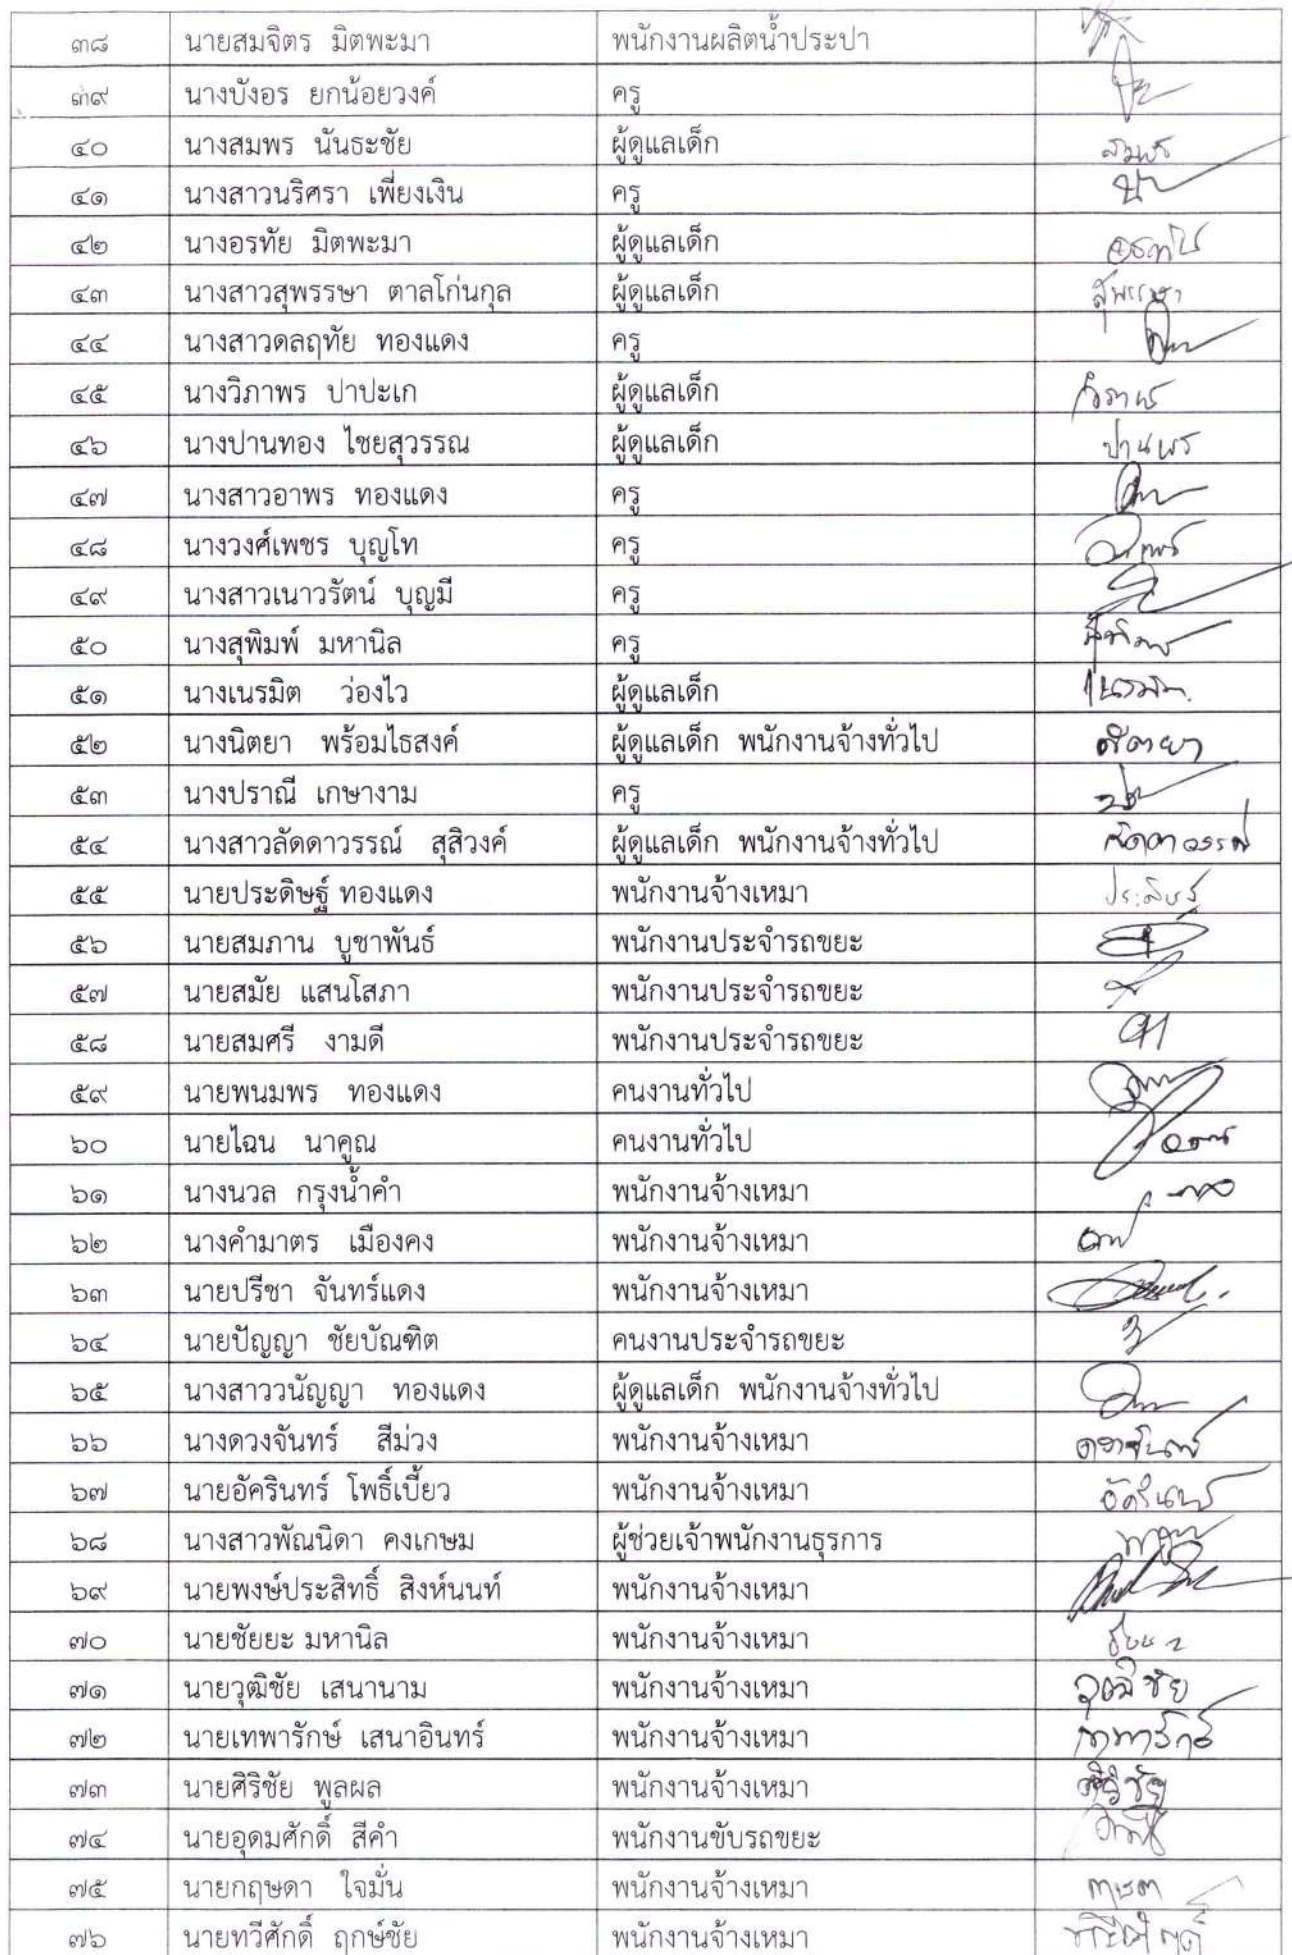 ๓๘ นายสมจิตร มิตพะมา พนักงานผลิตน้ำประปา
๓๙ นางบังอร ยกน้อยวงค์ ครู
๔๐ นางสมพร นันธะชัย ผู้ดูแลเด็ก สมพร
๔๑ นางสาวนริศรา เพี่ยงเงิน ครู
๔๒ นางอรทัย มิตพะมา ผู้ดูแลเด็ก อรทัย
๔๓ นางสาวสุพรรษา ตาลโก่นกุล ผู้ดูแลเด็ก สุพรรษา
๔๔ นางสาวดลฤทัย ทองแดง ครู
๔๕ นางวิภาพร ปาปะเก ผู้ดูแลเด็ก วิภาพร
๔๖ นางปานทอง ไชยสุวรรณ ผู้ดูแลเด็ก
๔๗ นางสาวอาพร ทองแดง ครู
๔๘ นางวงศ์เพชร บุญโท ครู
๔๙ นางสาวเนาวรัตน์ บุญมี ครู
๕๐ นางสุพิมพ์ มหานิล ครู
๕๑ นางเนรมิต ว่องไว ผู้ดูแลเด็ก เนรมิต
๕๒ นางนิตยา พร้อมไธสงค์ ผู้ดูแลเด็ก พนักงานจ้างทั่วไป นิตยา
๕๓ นางปราณี เกษางาม ครู
๕๔ นางสาวลัดดาวรรณ์ สุสิวงค์ ผู้ดูแลเด็ก พนักงานจ้างทั่วไป ลัดดาวรรณ์
๕๕ นายประดิษฐ์ ทองแดง พนักงานจ้างเหมา ประดิษฐ์
๕๖ นายสมภาน บูชาพันธ์ พนักงานประจำรถขยะ
๕๗ นายสมัย แสนโสภา พนักงานประจำรถขยะ
๕๘ นายสมศรี งามดี พนักงานประจำรถขยะ
๕๙ นายพนมพร ทองแดง คนงานทั่วไป
๖๐ นายไฉน นาคูณ คนงานทั่วไป
๖๑ นางนวล กรุงน้ำคำ พนักงานจ้างเหมา
๖๒ นางคำมาตร เมืองคง พนักงานจ้างเหมา
๖๓ นายปรีชา จันทร์แดง พนักงานจ้างเหมา
๖๔ นายปัญญา ชัยบัณฑิต คนงานประจำรถขยะ
๖๕ นางสาววนัญญา ทองแดง ผู้ดูแลเด็ก พนักงานจ้างทั่วไป
๖๖ นางดวงจันทร์ สีม่วง พนักงานจ้างเหมา ดวงจันทร์
๖๗ นายอัครินทร์ โพธิ์เบี้ยว พนักงานจ้างเหมา อัครินทร์
๖๘ นางสาวพัณนิดา คงเกษม ผู้ช่วยเจ้าพนักงานธุรการ
๖๙ นายพงษ์ประสิทธิ์ สิงห์นนท์ พนักงานจ้างเหมา
๗๐ นายชัยยะ มหานิล พนักงานจ้างเหมา
๗๑ นายวุฒิชัย เสนานาม พนักงานจ้างเหมา วุฒิชัย
๗๒ นายเทพารักษ์ เสนาอินทร์ พนักงานจ้างเหมา
๗๓ นายศิริชัย พูลผล พนักงานจ้างเหมา ศิริชัย
๗๔ นายอุดมศักดิ์ สีคำ พนักงานขับรถขยะ
๗๕ นายกฤษดา ใจมั่น พนักงานจ้างเหมา
๗๖ นายทวีศักดิ์ ฤกษ์ชัย พนักงานจ้างเหมา